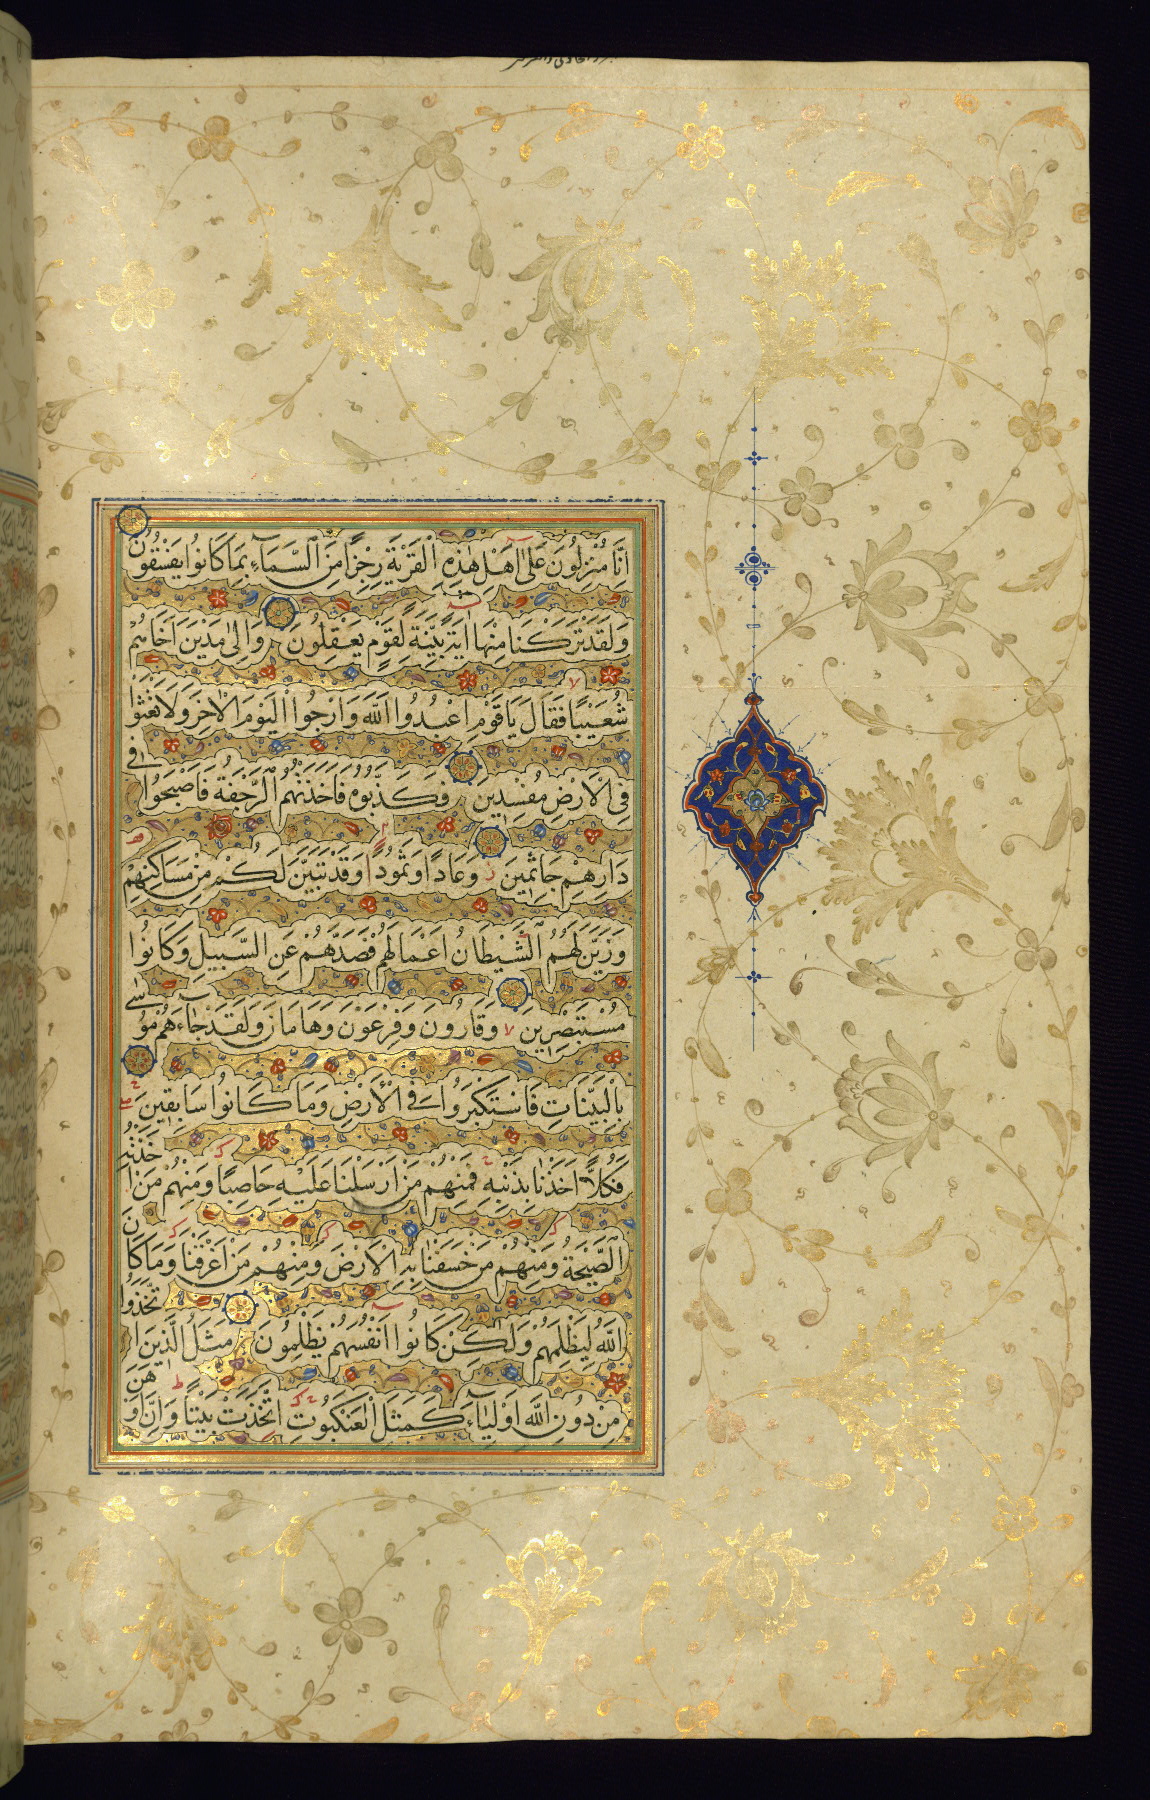 اِنَّا مُنْزِلُونَ عَلٰٓى اَهْلِ هٰذِهِ الْقَرْيَةِ رِجْزًا مِنَ السَّمَآءِ بِمَا كَانُوا يَفْسُقُونَ
وَلَقَدْ تَرَكْنَا مِنْهَا اٰيَةً بَيِّنَةً لِقَوْمٍ يَعْقِلُونَ وَاِلٰى مَدْيَنَ اَخَاهُمْ
شُعَيْبًا فَقَالَ يَا قَوْمِ اعْبُدُوا اللّٰهَ وَارْجُوا الْيَوْمَ الْاٰخِرَ وَلَا تَعْثَوْا فِي
فِي الْاَرْضِ مُفْسِدِينَ فَكَذَّبُوهُ فَاَخَذَتْهُمُ الرَّجْفَةُ فَاَصْبَحُوا
دَارِهِمْ جَاثِمِينَ وَعَادًا وَثَمُودًا وَقَدْ تَبَيَّنَ لَكُمْ مِنْ مَسَاكِنِهِمْ
وَزَيَّنَ لَهُمُ الشَّيْطَانُ اَعْمَالَهُمْ فَصَدَّهُمْ عَنِ السَّبِيلِ وَكَانُوا
مُسْتَبْصِرِينَ وَقَارُونَ وَفِرْعَوْنَ وَهَامَانَ وَلَقَدْ جَآءَهُمْ مُوسٰى
بِالْبَيِّنَاتِ فَاسْتَكْبَرُوا فِي الْاَرْضِ وَمَا كَانُوا سَابِقِينَ
فَكُلًّا اَخَذْنَا بِذَنْبِهِ فَمِنْهُمْ مَنْ اَرْسَلْنَا عَلَيْهِ حَاصِبًا وَمِنْهُمْ مَنْ اَخَذَتْهُ
الصَّيْحَةُ وَمِنْهُمْ مَنْ خَسَفْنَا بِهِ الْاَرْضَ وَمِنْهُمْ مَنْ اَغْرَقْنَا وَمَا كَانَ
اللّٰهُ لِيَظْلِمَهُمْ وَلٰكِنْ كَانُوا اَنْفُسَهُمْ يَظْلِمُونَ مَثَلُ الَّذِينَ اتَّخَذُوا
مِنْ دُونِ اللّٰهِ اَوْلِيَآءَ كَمَثَلِ الْعَنْكَبُوتِ اتَّخَذَتْ بَيْتًا وَاِنَّ اَوْهَنَ